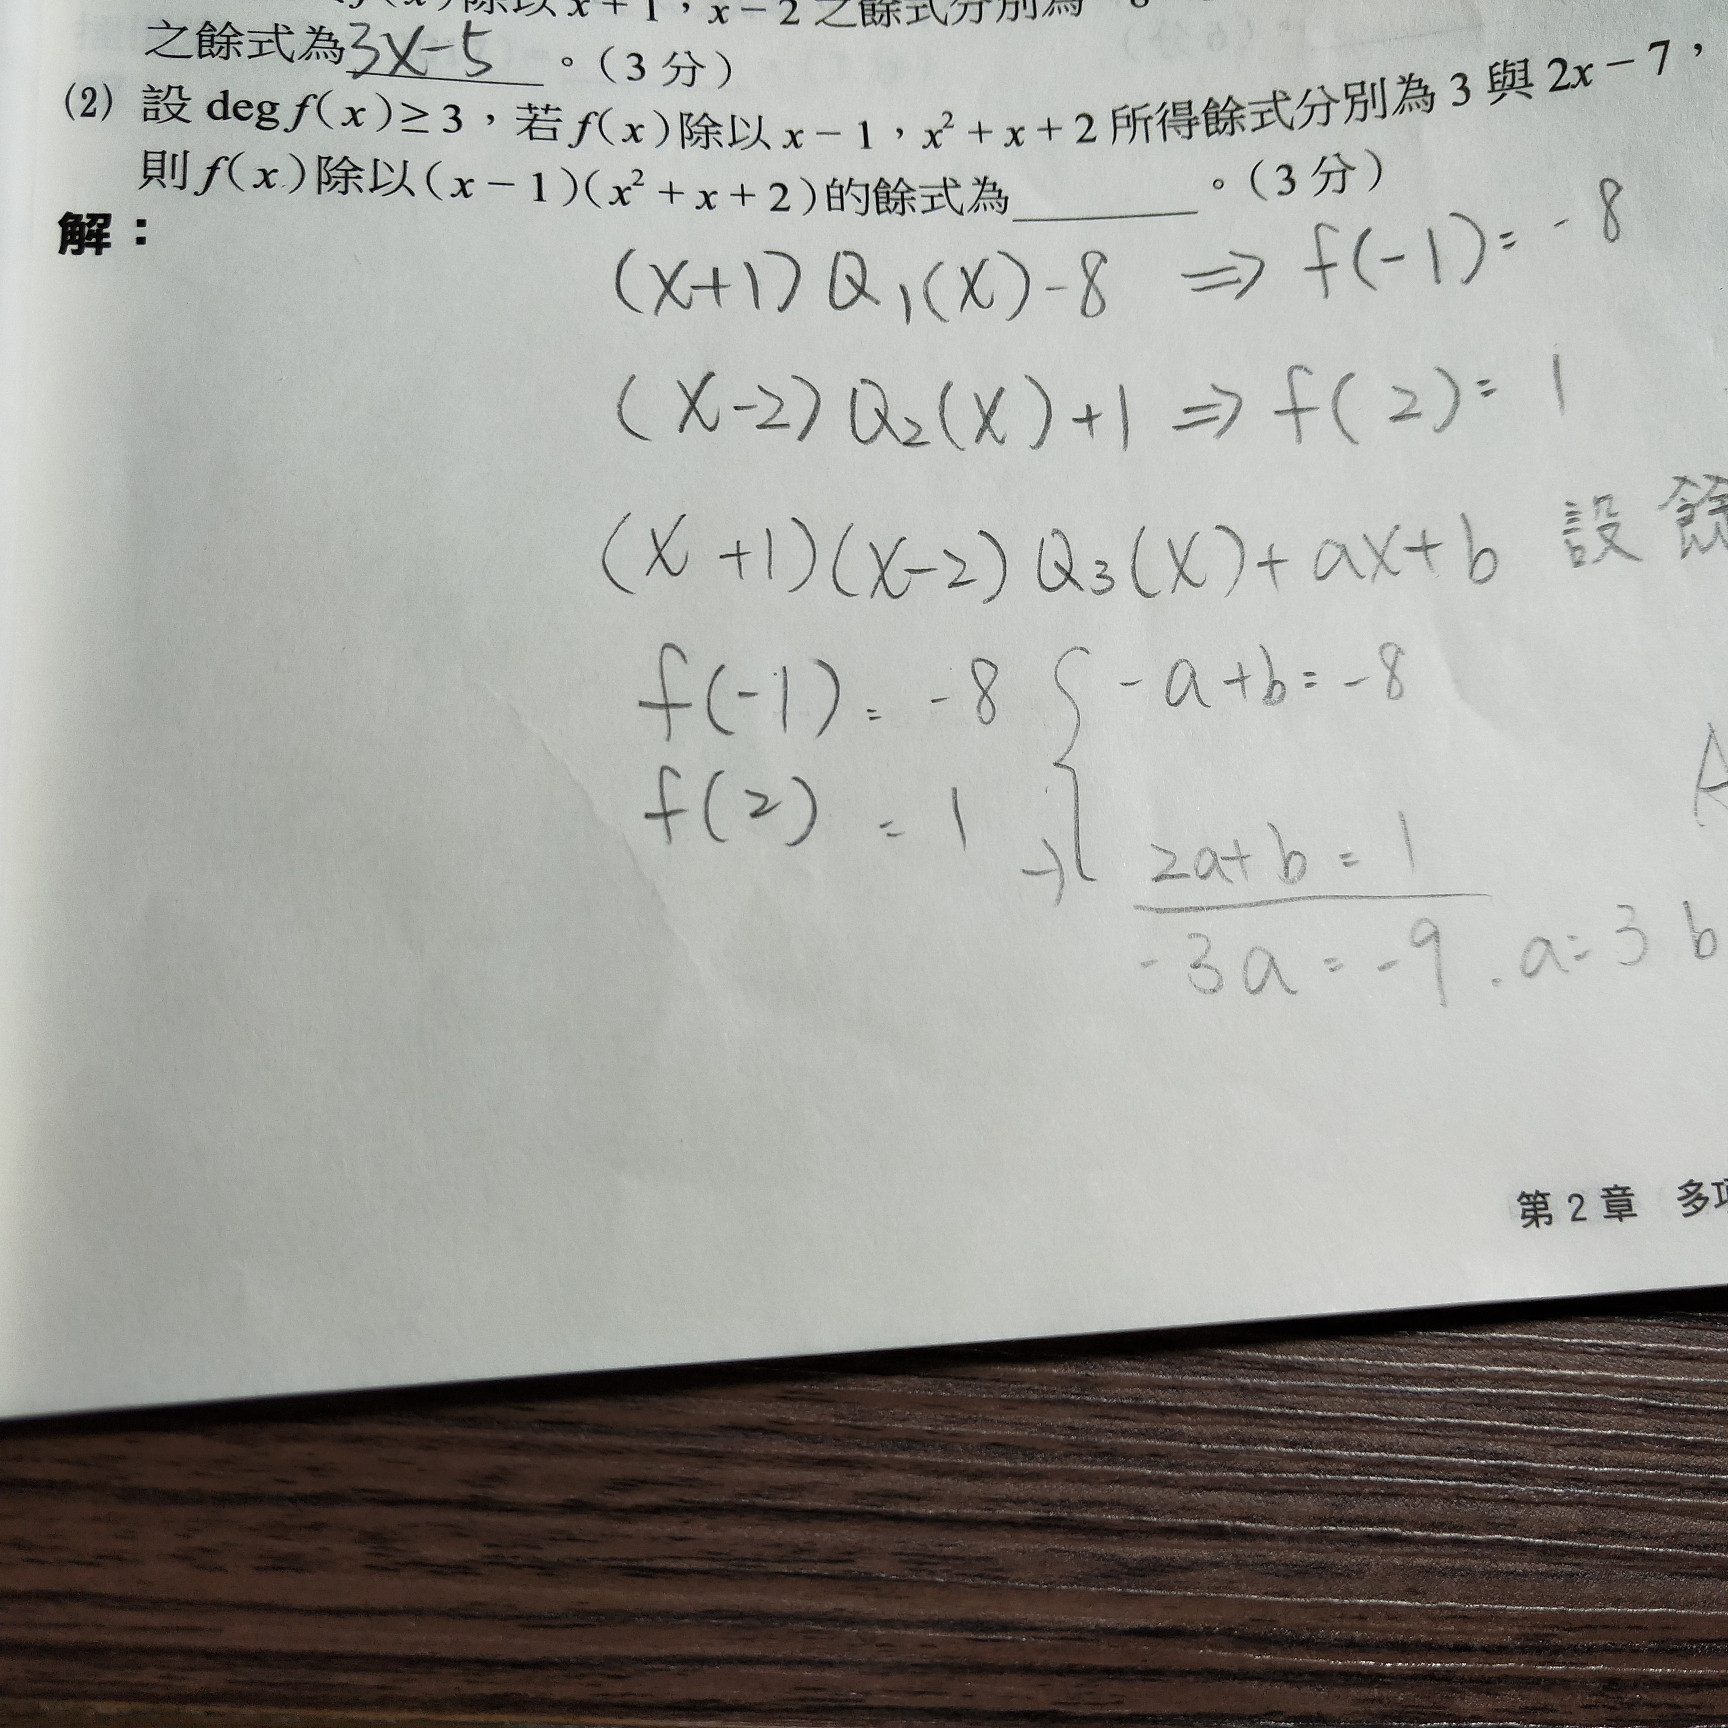 f(x)除以x+1,x-2之餘式分別為
之餘式為3x-5。(3分)
(2) 設deg f(x)≥3,若f(x)除以x-1,x²+x+2所得餘式分別為3與2x-7,
則f(x)除以(x-1)(x²+x+2)的餘式為______。(3分)
解:
(x+1)Q₁(x)-8 ⇒ f(-1)=-8
(x-2)Q₂(x)+1 ⇒ f(2)=1
(x+1)(x-2)Q₃(x)+ax+b 設餘
f(-1)=-8 { -a+b=-8
f(2)=1 → 2a+b=1
-3a=-9. a=3 b
第2章 多項